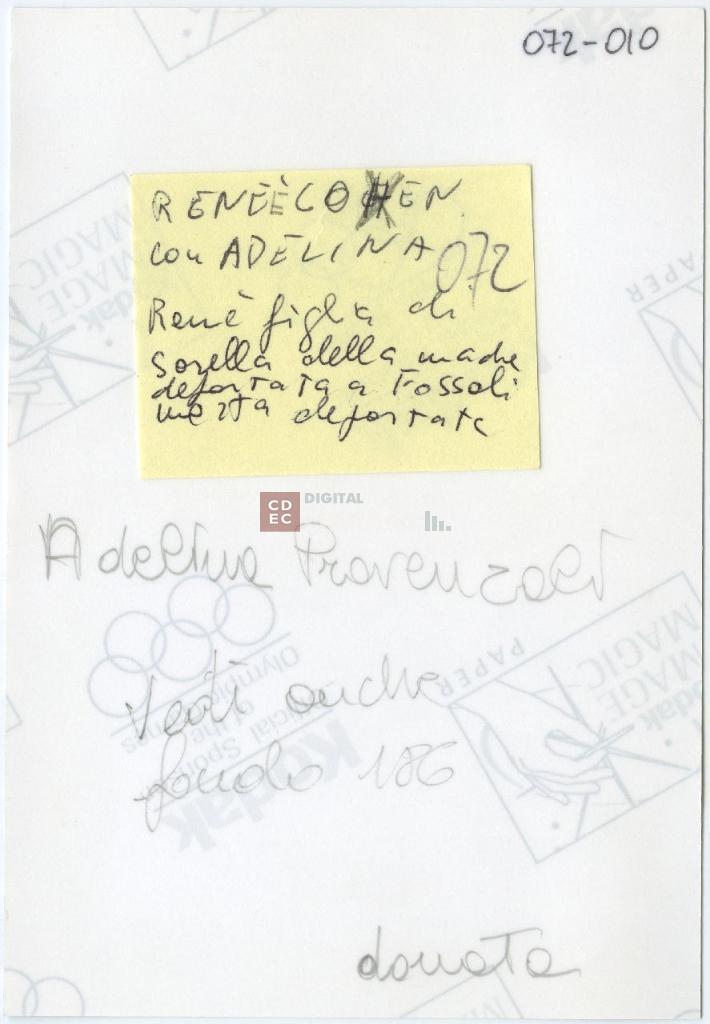 072-010
RENEÈ COHEN
con ADELINA
072
Renè figlia di
sorella della madre
deportata a Fossoli
deportata
CDEC DIGITAL
Adelina Provenzali
Vedi anche
fondo 186
donata
PAPER
MAGIC
IMAGE
Kodak
PAPER
MAGIC
IMAGE
Kodak
Official Sponsor
of the
Olympic Games
Kodak